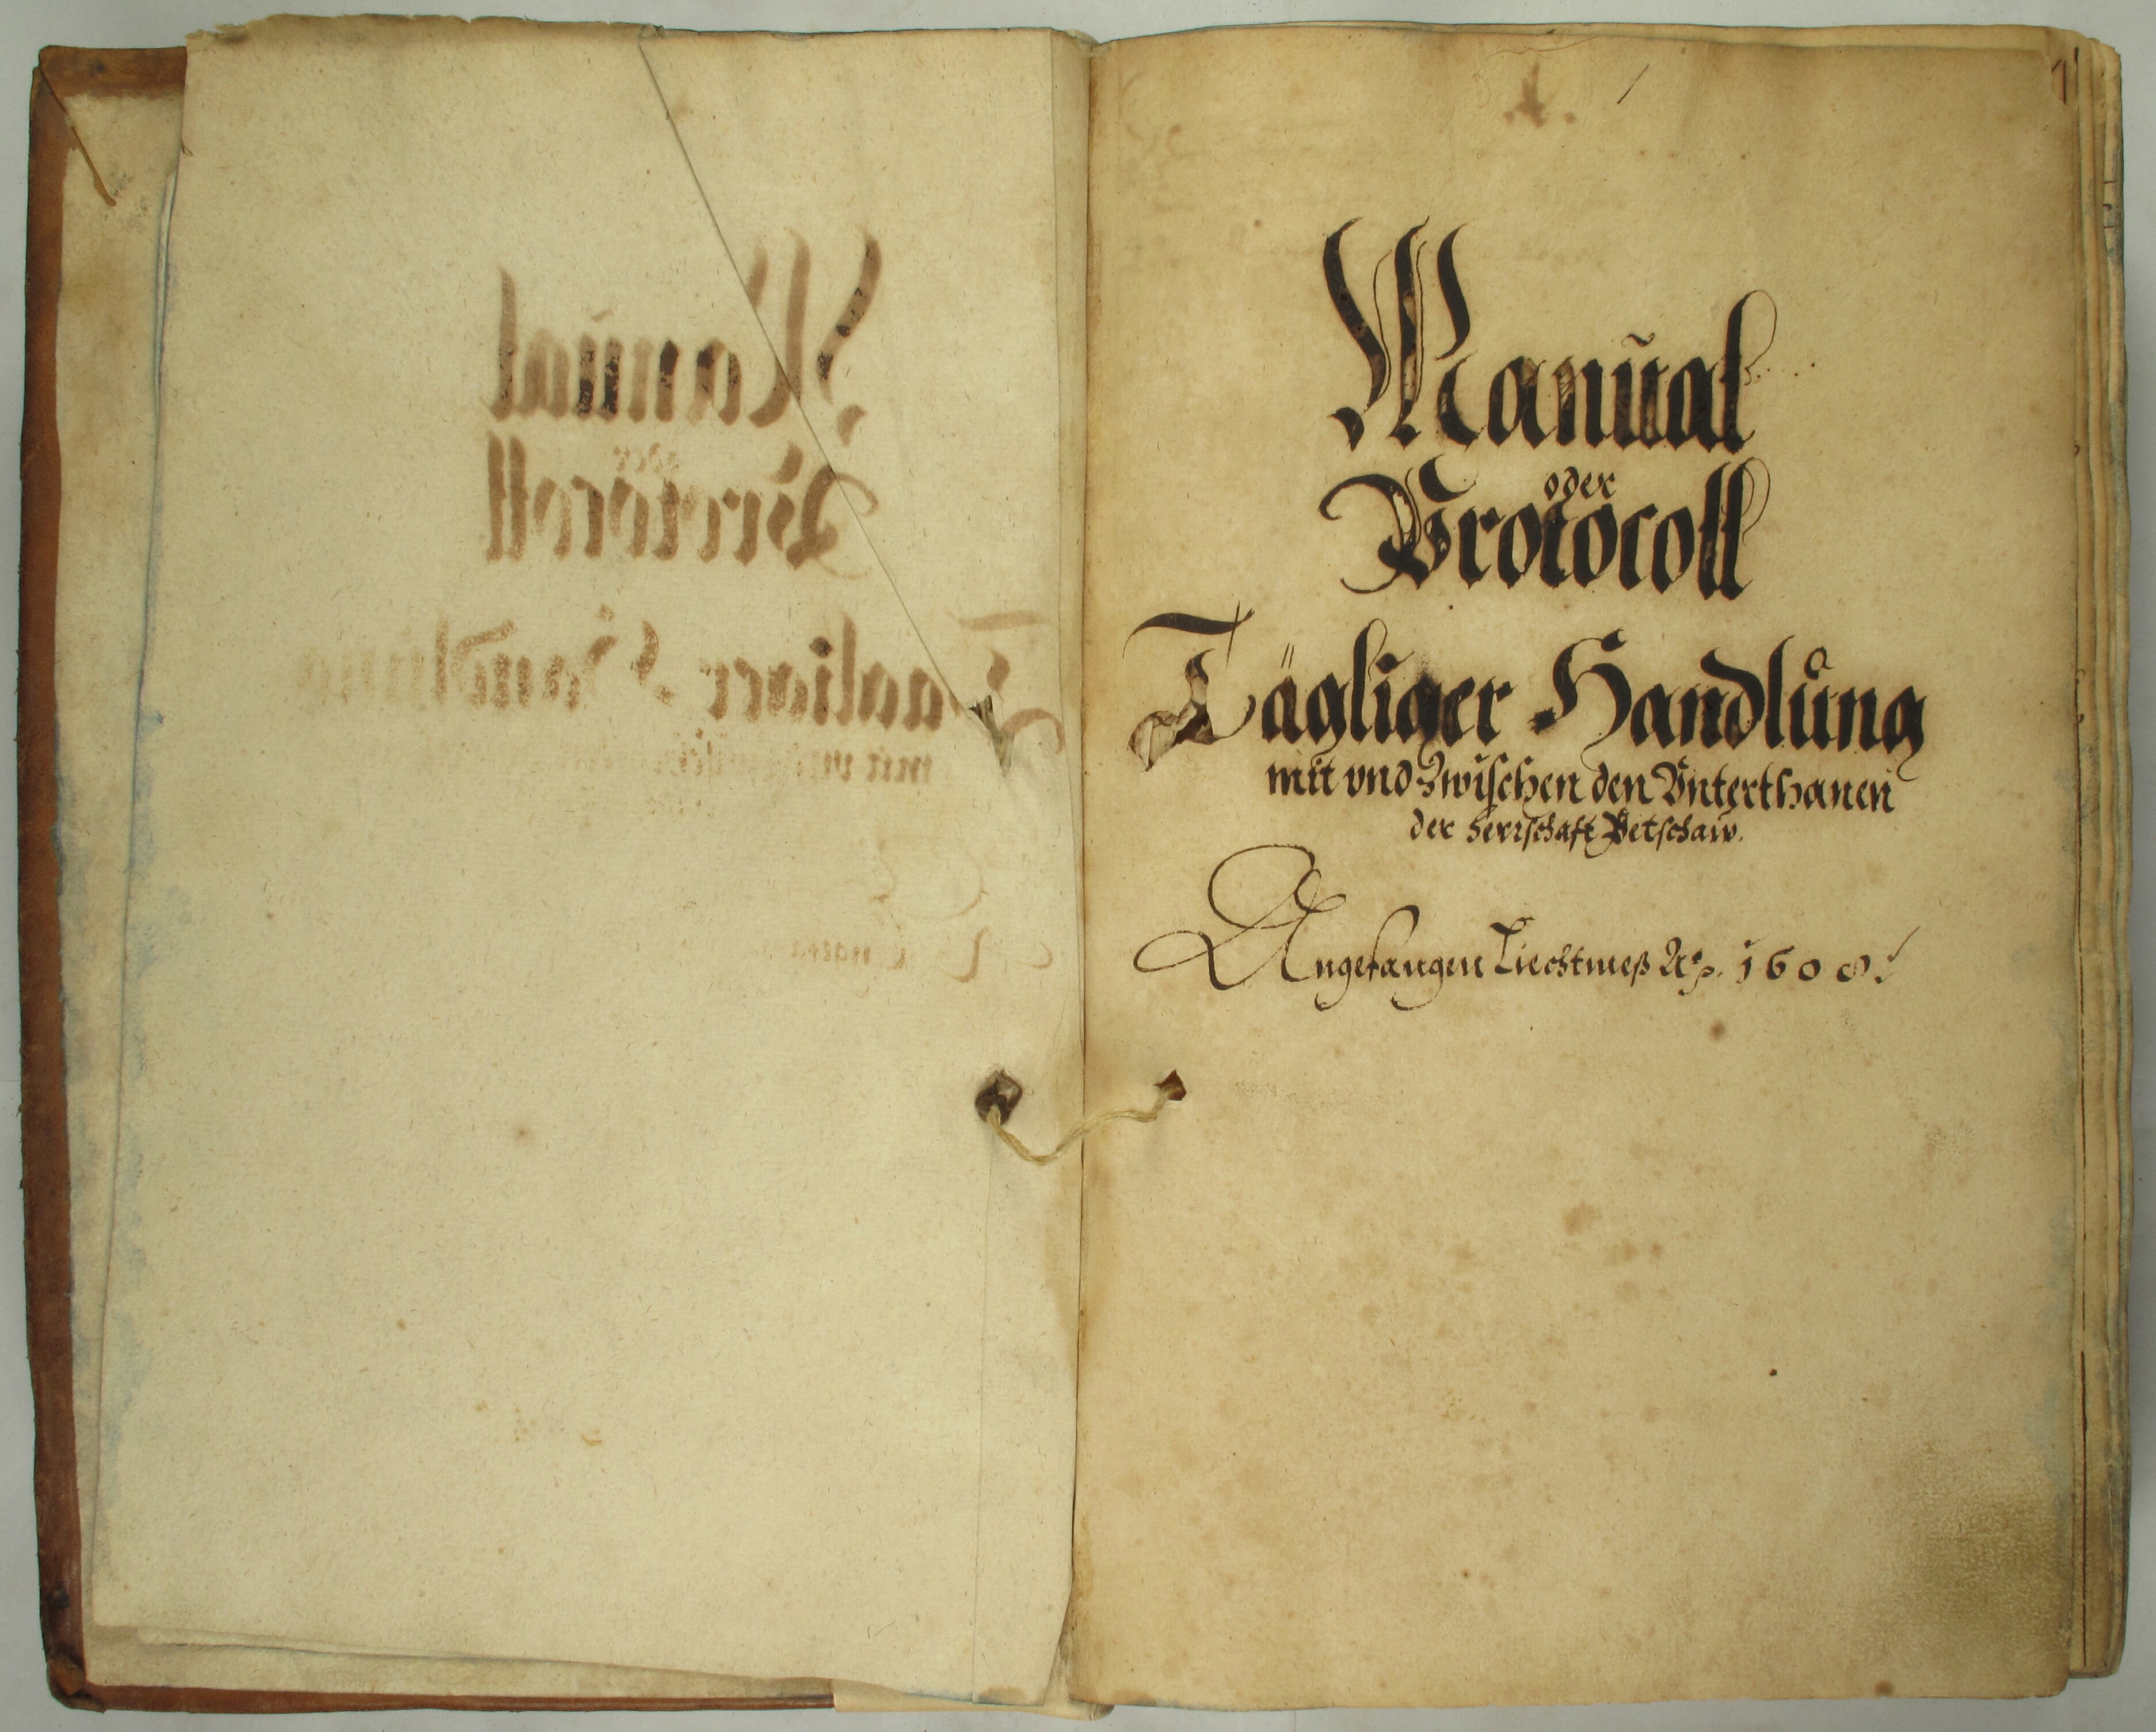 1
Manŭal
oder
Protocoll
Tägliger Handlůng
mit vnd Zwischen den Vnterthanen
der Herrschafft Petschaw.
Angefangen Liechtmeß Ao. 1608.